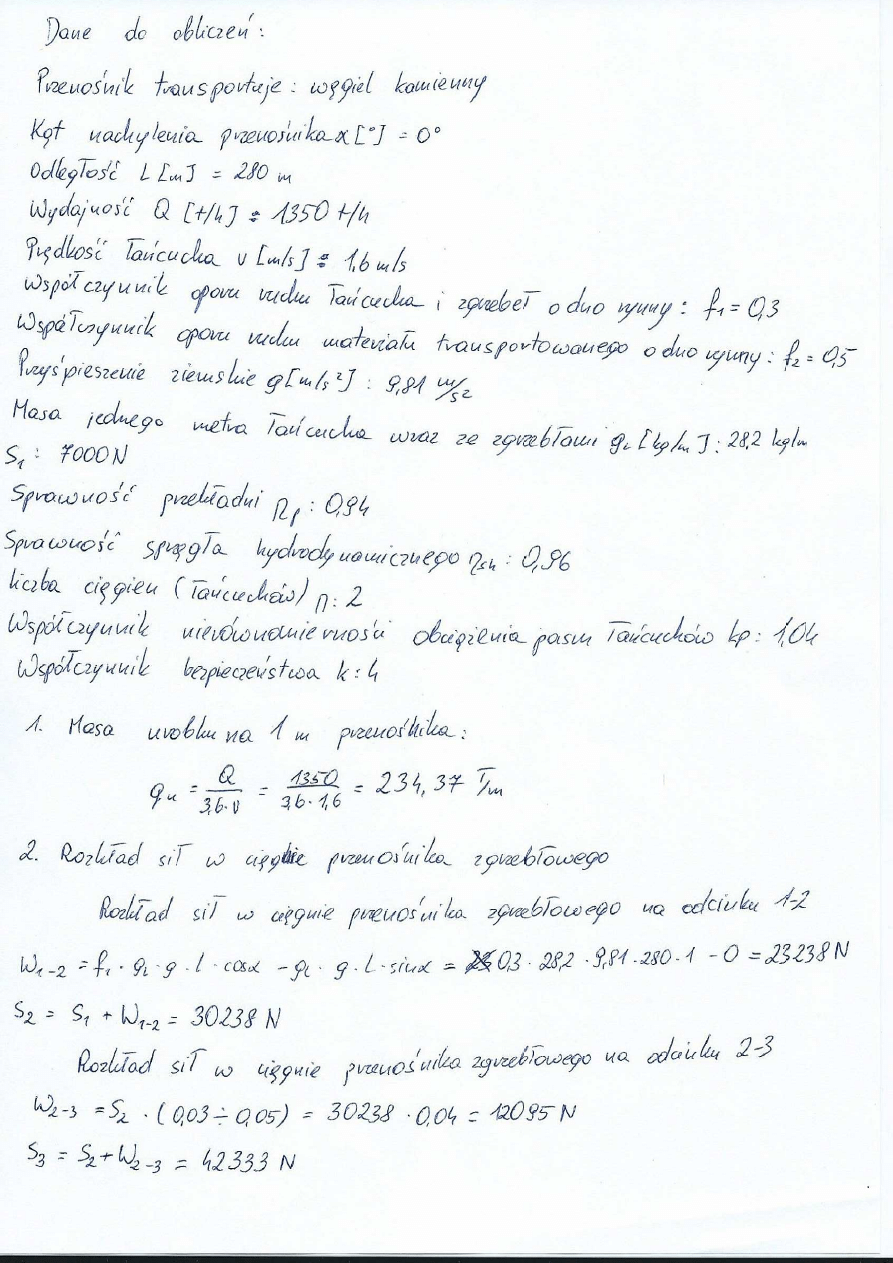 Dane do obliczeń:
Przenośnik transportuje: węgiel kamienny
Kąt nachylenia przenośnika α [°] = 0°
Odległość L [m] = 280 m
Wydajność Q [t/h] = 1350 t/h
Prędkość łańcucha v [m/s] = 1,6 m/s
Współczynnik oporu ruchu łańcucha i zgrzebeł o dno rynny: f₁ = 0,3
Współczynnik oporu ruchu materiału transportowanego o dno rynny: f₂ = 0,5
Przyśpieszenie ziemskie g [m/s²]: 9,81 m/s²
Masa jednego metra łańcucha wraz ze zgrzebłami qₗ [kg/m]: 28,2 kg/m
S₁: 7000 N
Sprawność przekładni ηₚ: 0,94
Sprawność sprzęgła hydrodynamicznego ηsh: 0,96
liczba cięgien (łańcuchów) n: 2
Współczynnik nierównomierności obciążenia pasm łańcuchów kp: 1,04
Współczynnik bezpieczeństwa k: 4
1. Masa urobku na 1 m przenośnika:
qᵤ = Q / 3,6·v = 1350 / 3,6·1,6 = 234,37 T/m
2. Rozkład sił w cięgnie przenośnika zgrzebłowego
Rozkład sił w cięgnie przenośnika zgrzebłowego na odcinku 1-2
W₁₋₂ = f₁ · qₗ · g · l · cosα - qₗ · g · L · sinα = 0,3 · 28,2 · 9,81 · 280 · 1 - 0 = 23238 N
S₂ = S₁ + W₁₋₂ = 30238 N
Rozkład sił w cięgnie przenośnika zgrzebłowego na odcinku 2-3
W₂₋₃ = S₂ · (0,03 ÷ 0,05) = 30238 · 0,04 = 12095 N
S₃ = S₂ + W₂₋₃ = 42333 N